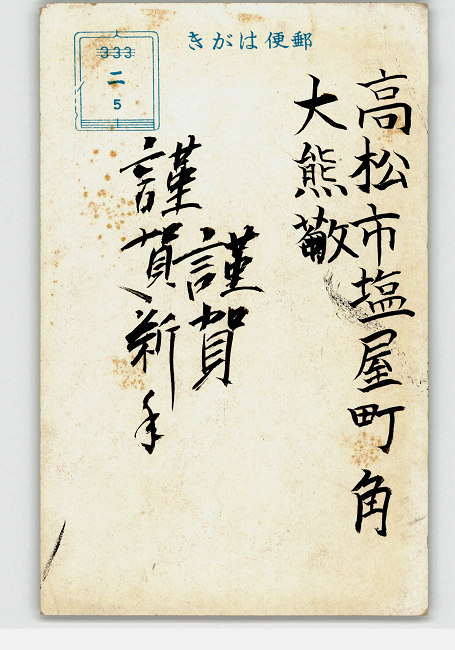 郵便はがき
333
二
5
高松市塩屋町角
大熊敬
謹賀
謹賀新年